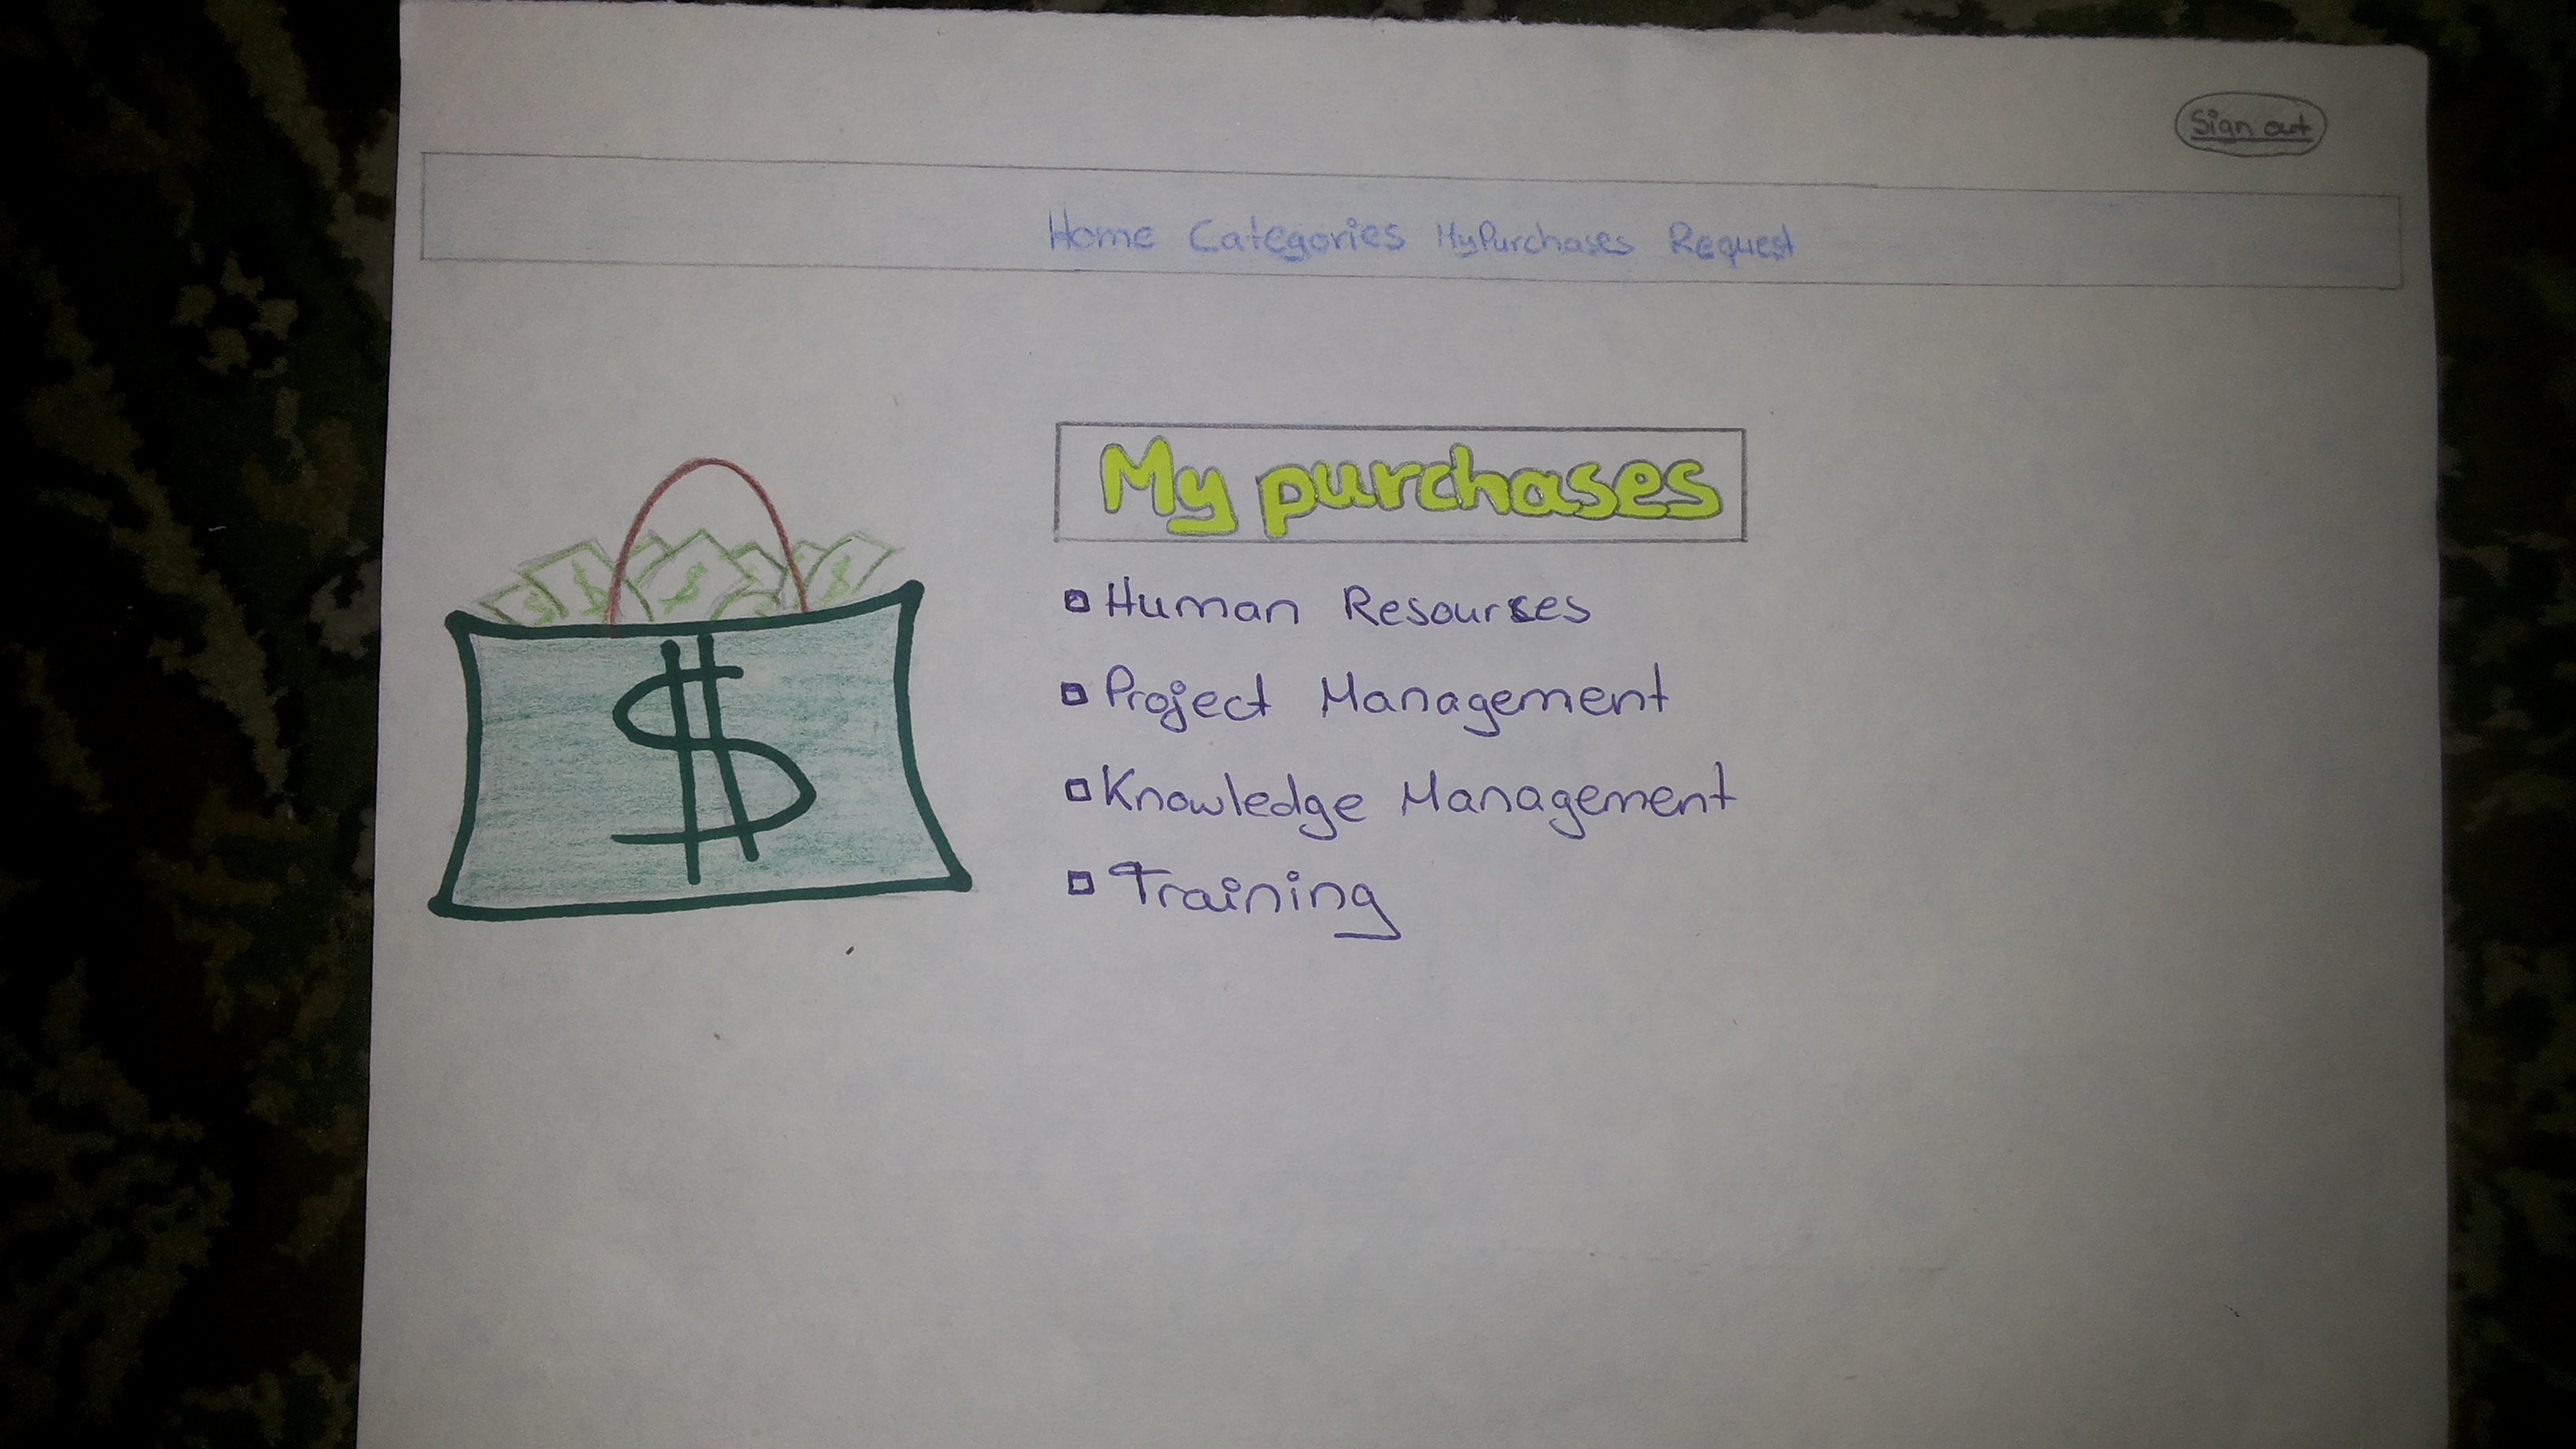 Sign out
Home Categories MyPurchases Request
My purchases
Human Resources
Project Management
Knowledge Management
Training
$
$ $ $ $ $